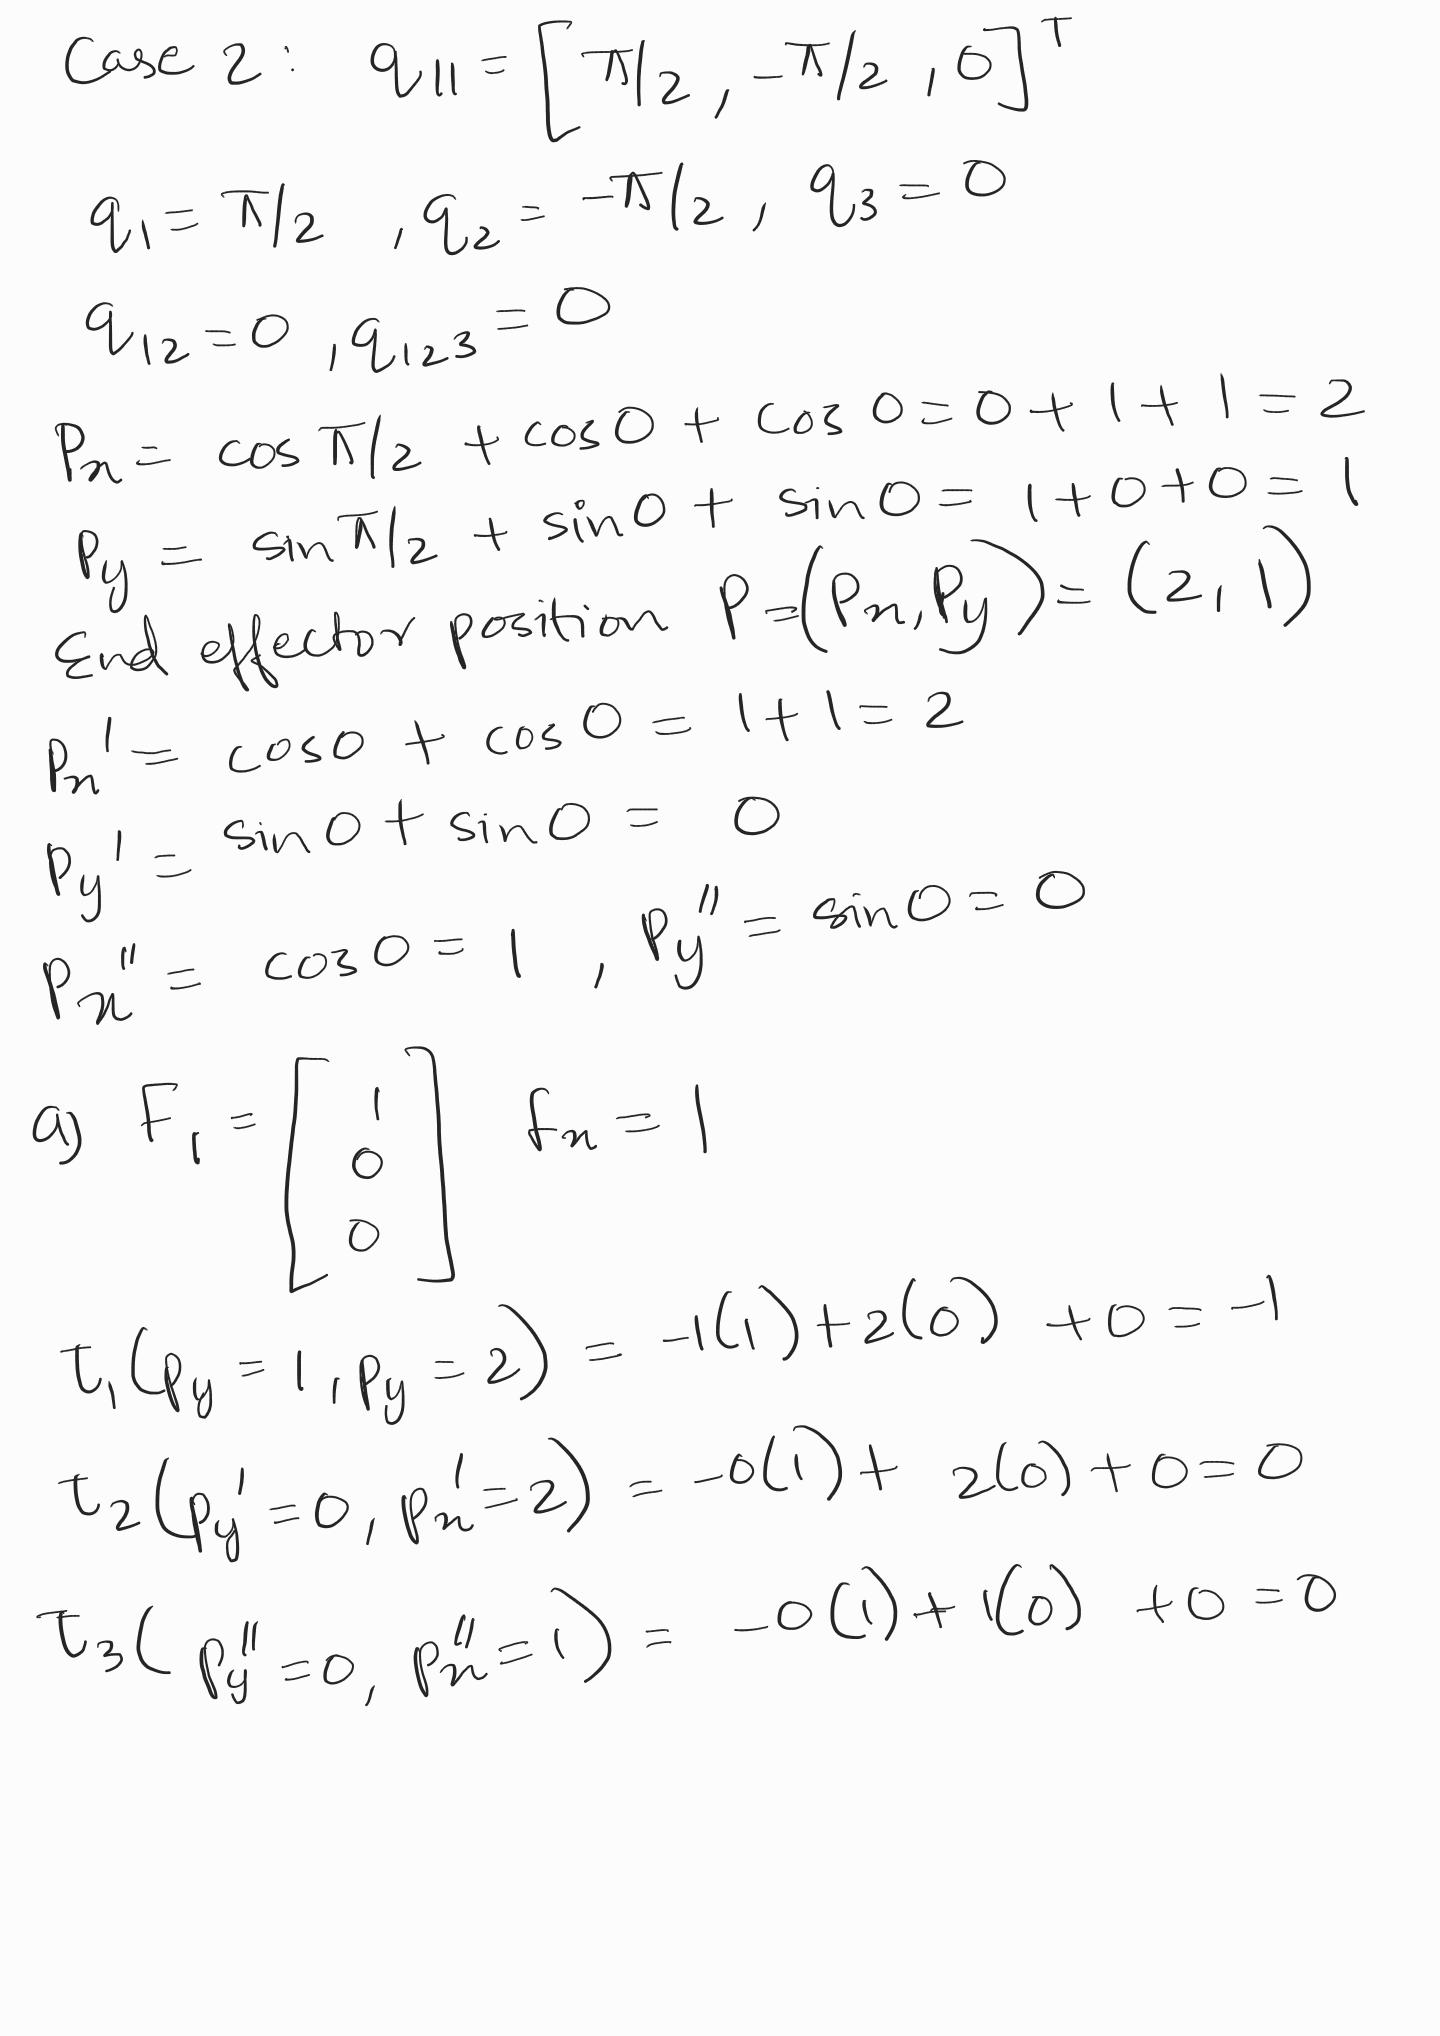 Case 2: q11 = [π/2, -π/2, 0]^T
q1 = π/2, q2 = -π/2, q3 = 0
q12 = 0, q123 = 0
Px = cos π/2 + cos 0 + cos 0 = 0 + 1 + 1 = 2
Py = sin π/2 + sin 0 + sin 0 = 1 + 0 + 0 = 1
End effector position P = (Px, Py) = (2, 1)
Px' = cos 0 + cos 0 = 1 + 1 = 2
Py' = sin 0 + sin 0 = 0
Px'' = cos 0 = 1, Py'' = sin 0 = 0
a) F1 = [1 0 0] fx = 1
τ1 (Py = 1, Py = 2) = -1(1) + 2(0) + 0 = -1
τ2 (Py' = 0, Px' = 2) = -0(1) + 2(0) + 0 = 0
τ3 (Py'' = 0, Px'' = 1) = -0(1) + 1(0) + 0 = 0